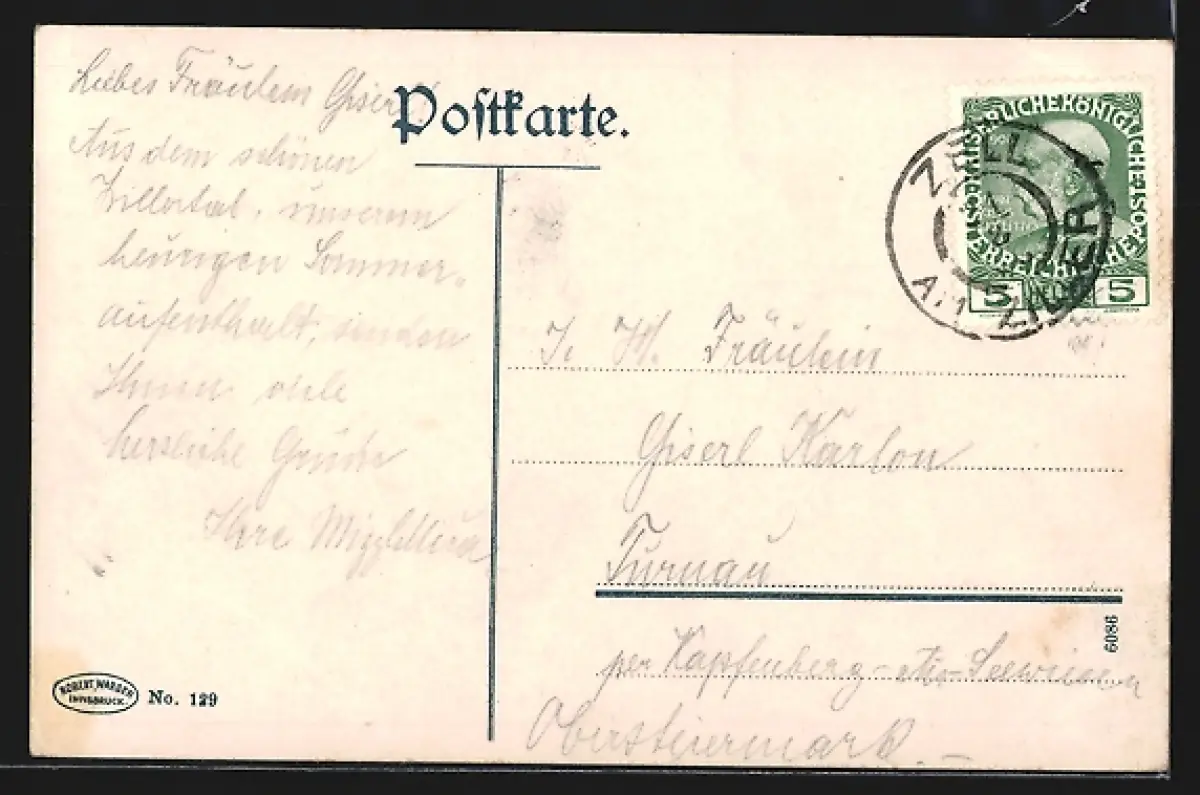 Postkarte.
Liebes Fräulein Giserl
Aus dem schönen
Zillertal, unserem
heurigen Sommer-
aufenthalt, senden
Ihnen viele
herzliche Grüße
Ihre
KAISERLICHE KÖNIGLICHE ÖSTERREICHISCHE
5 5
ZELL
AM ZILLER
Fräulein
Giserl Karlon
Turnau
per Kapfenberg-Au-Seewiesen
Obersteiermark.
6086
ROBERT WARGER
INNSBRUCK
No. 129